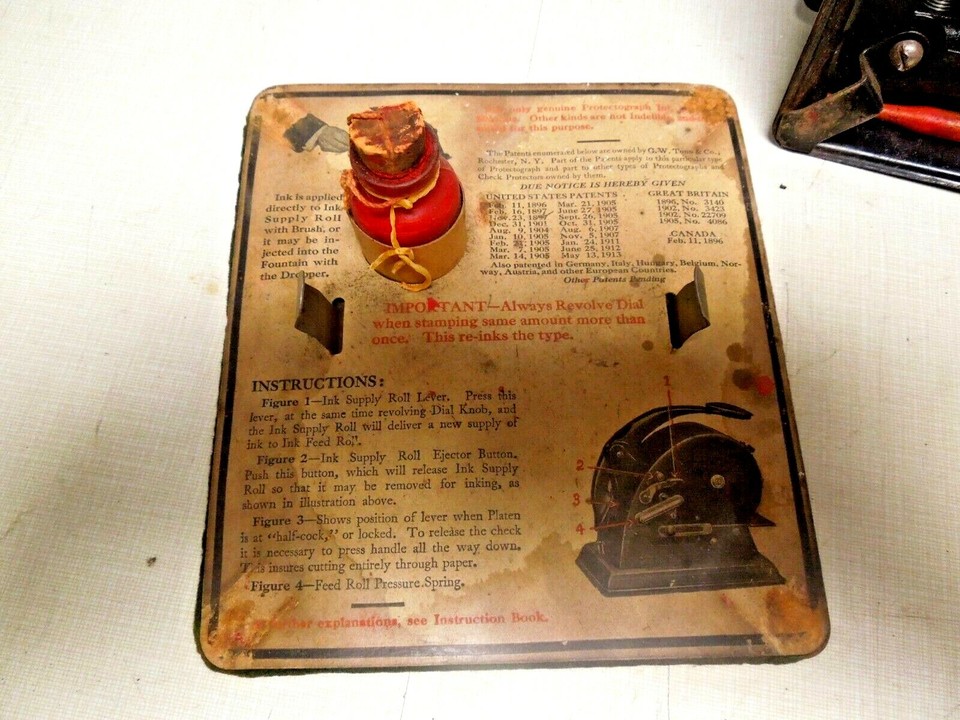 only genuine Protectograph
Other kinds are not Indelible
for this purpose.
The Patents enumerated below are owned by G.W. Todd & Co.,
Rochester, N. Y. Part of the Patents apply to this particular type
of Protectograph and part to other types of Protectographs and
Check Protectors owned by them.
DUE NOTICE IS HEREBY GIVEN
UNITED STATES PATENTS
11, 1896 Mar. 21, 1905
Feb. 16, 1897 June 27, 1905
Nov. 23, 1897 Sept. 26, 1905
Dec. 31, 1901 Oct. 31, 1905
Aug. 9, 1904 Aug. 6, 1907
Jan. 10, 1905 Nov. 5, 1907
Feb. 21, 1905 Jan. 24, 1911
Mar. 7, 1905 June 25, 1912
Mar. 14, 1905 May 13, 1913
GREAT BRITAIN
1896, No. 3140
1902, No. 3423
1902, No. 22709
1905, No. 4086
CANADA
Feb. 11, 1896
Also patented in Germany, Italy, Hungary, Belgium, Nor-
way, Austria, and other European Countries.
Other Patents Pending
Ink is applied
directly to Ink
Supply Roll
with Brush, or
it may be in-
jected into the
Fountain with
the Dropper.
IMPORTANT—Always Revolve Dial
when stamping same amount more than
once. This re-inks the type.
INSTRUCTIONS:
Figure 1—Ink Supply Roll Lever. Press this
lever, at the same time revolving Dial Knob, and
the Ink Supply Roll will deliver a new supply of
ink to Ink Feed Roll.
Figure 2—Ink Supply Roll Ejector Button.
Push this button, which will release Ink Supply
Roll so that it may be removed for inking, as
shown in illustration above.
Figure 3—Shows position of lever when Platen
is at "half-cock," or locked. To release the check
it is necessary to press handle all the way down.
This insures cutting entirely through paper.
Figure 4—Feed Roll Pressure Spring.
1
2
3
4
explanations, see Instruction Book.